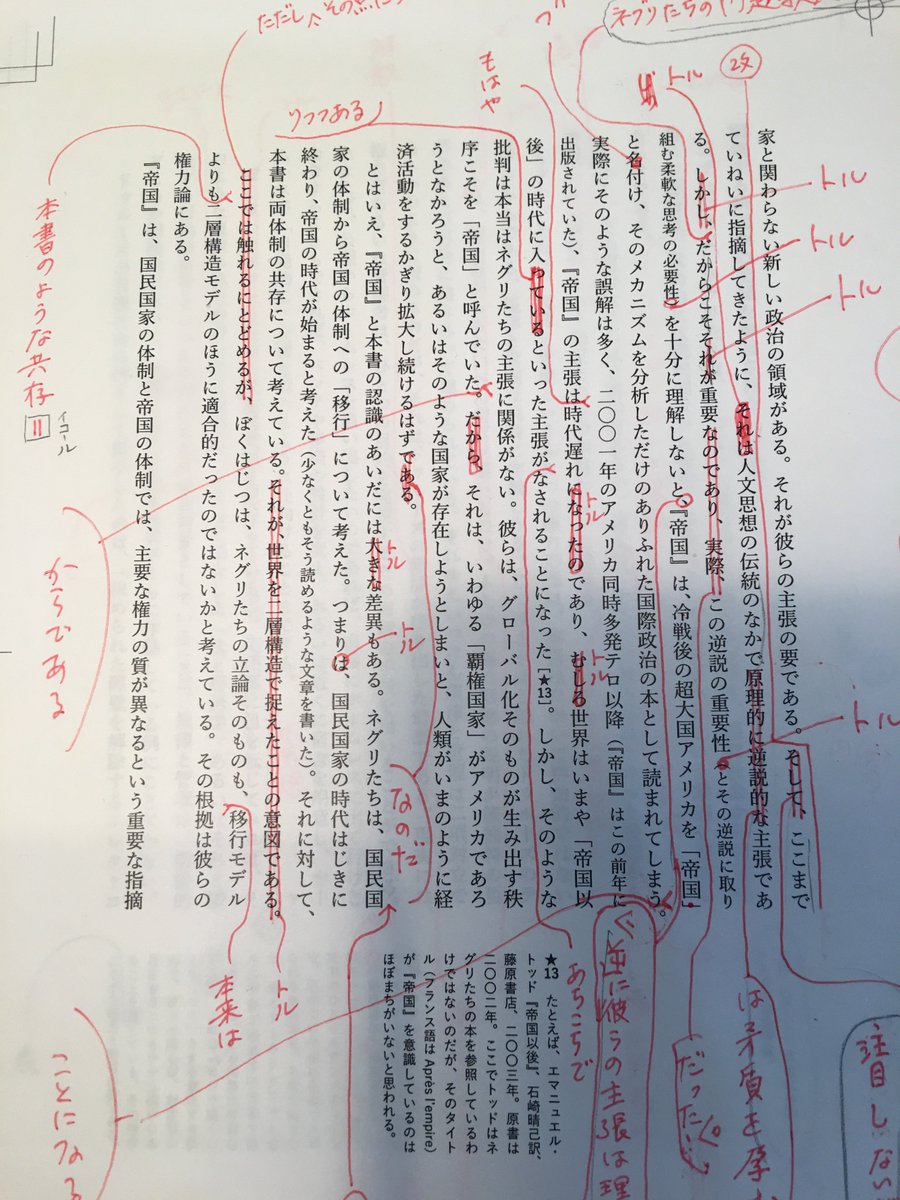 家と関わらない新しい政治の領域がある。それが彼らの主張の要である。そして、ここまで
ていねいに指摘してきたように、それは人文思想の伝統のなかで原理的に逆説的な主張であ
る。しかし、だからこそそれが重要なのであり、実際、この逆説の重要性(とその逆説に取り
組む柔軟な思考の必要性)を十分に理解しないと『帝国』は、冷戦後の超大国アメリカを「帝国」
と名付け、そのメカニズムを分析しただけのありふれた国際政治の本として読まれてしまう。
実際にそのような誤解は多く、二〇〇一年のアメリカ同時多発テロ以降(『帝国』はこの前年に
出版されていた)、『帝国』の主張は時代遅れになったのであり、むしろ世界はいまや「帝国以
後」の時代に入っているといった主張がなされることになった[★13]。しかし、そのような
批判は本当はネグリたちの主張に関係がない。彼らは、グローバル化そのものが生み出す秩
序こそを「帝国」と呼んでいた。だから、それは、いわゆる「覇権国家」がアメリカであろ
うとなかろうと、あるいはそのような国家が存在しようとしまいと、人類がいまのように経
済活動をするかぎり拡大し続けるはずである。
とはいえ、『帝国』と本書の認識のあいだには大きな差異もある。ネグリたちは、国民国
家の体制から帝国の体制への「移行」について考えた。つまりは、国民国家の時代はじきに
終わり、帝国の時代が始まると考えた(少なくともそう読めるような文章を書いた)。それに対して、
本書は両体制の共存について考えている。それが、世界を二層構造で捉えたことの意図である。
ここでは触れるにとどめるが、ぼくはじつは、ネグリたちの立論そのものも、移行モデル
よりも二層構造モデルのほうに適合的だったのではないかと考えている。その根拠は彼らの
権力論にある。
『帝国』は、国民国家の体制と帝国の体制では、主要な権力の質が異なるという重要な指摘
★13 たとえば、エマニュエル・
トッド『帝国以後』、石崎晴己訳、
藤原書店、二〇〇三年。原書は
二〇〇二年。ここでトッドはネ
グリたちの本を参照しているわ
けではないのだが、そのタイト
ル(フランス語は Après l'empire)
が『帝国』を意識しているのは
ほぼまちがいないと思われる。
改
トル
トル
トル
トル
トル
もはや
りつつある
トル
トル
トル
トル
トル
なのだ
本書のような共存
イコール
からである
本来は
ことになる
あちこちで
逆に彼らの主張は理
だった
は矛盾を孕
注目しない